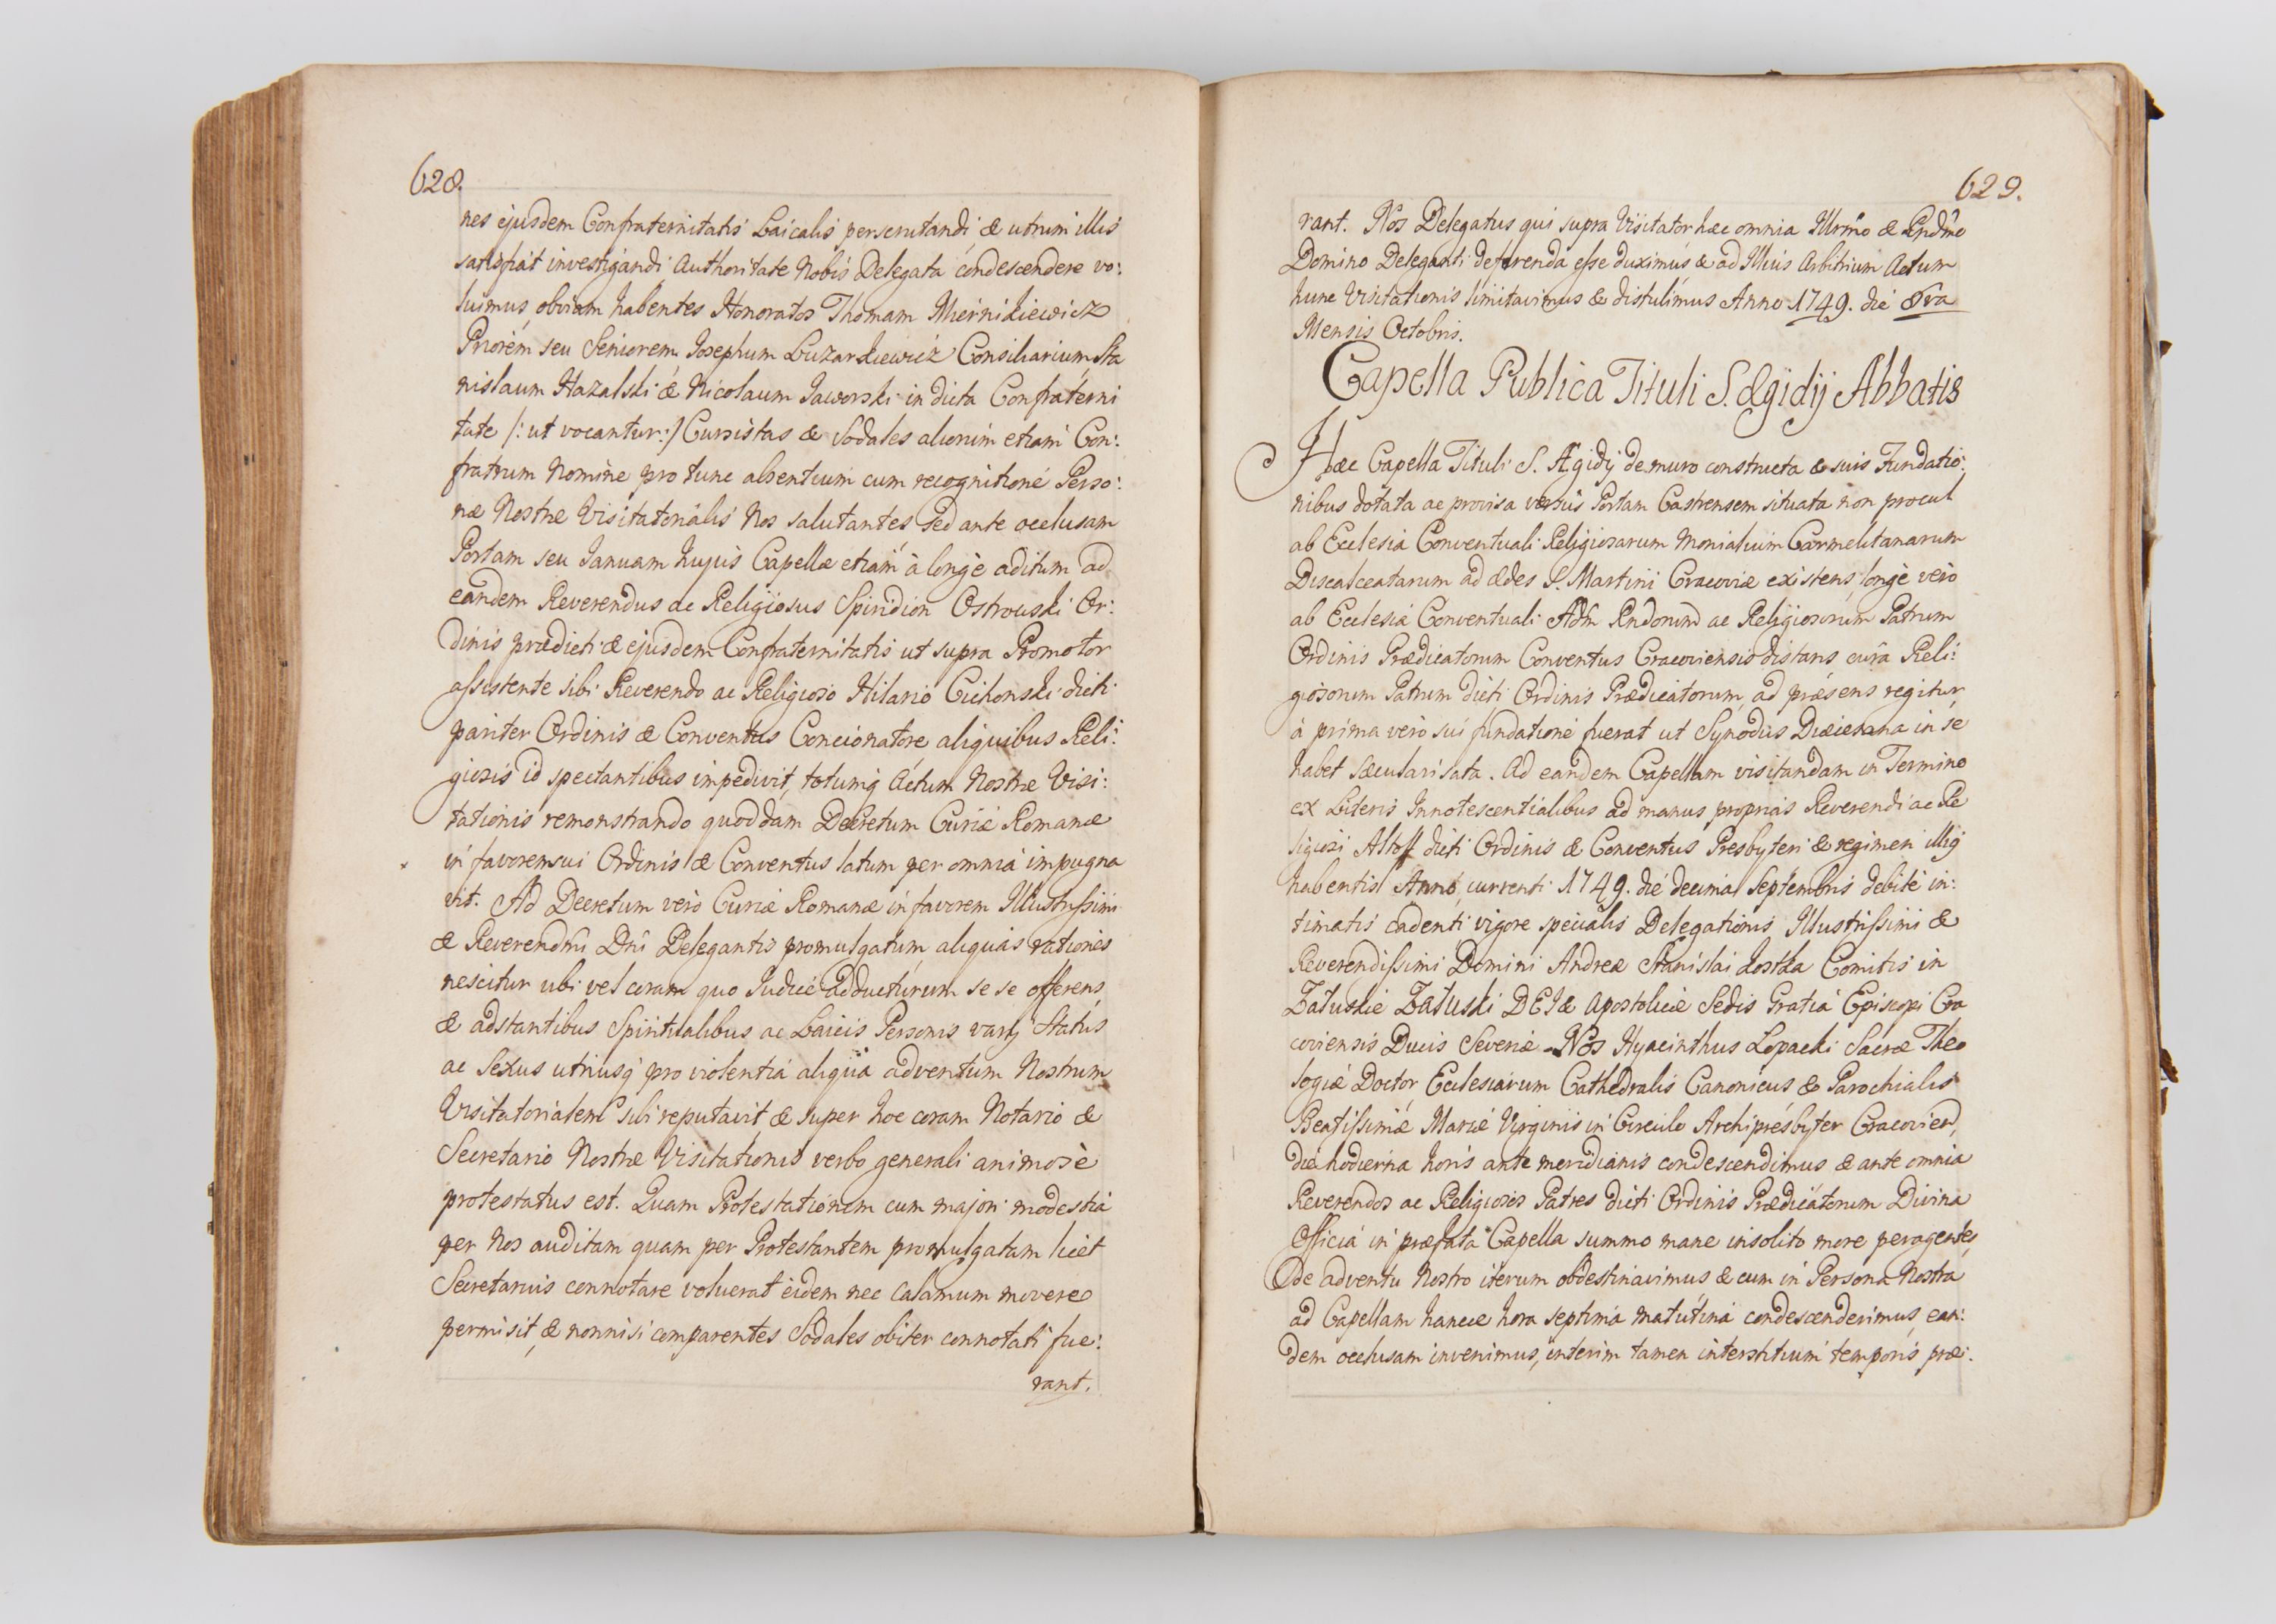 628.
nes ejusdem Confraternitatis Laicalis perscrutandi, & utrum illis
satisfiat investigandi Authoritate Nobis Delegata condescendere vo:
luimus, obviam habentes Honoratos Thomam Miernikiewicz
Priorem seu Seniorem Josephum Luzarkiewicz Consiliarium, Sta
nislaum Hazalski & Nicolaum Jaworski in dicta Confraterni
tate /: ut vocantur :/ Cursistas & Sodales aliorum etiam Con:
fratrum Nomine pro tunc absentium cum recognitione Perso:
næ Nostræ Visitatorialis Nos salutantes, sed ante occlusam
Portam seu Januam hujus Capellæ etiam à longè aditum ad
eandem Reverendus ac Religiosus Spiridion Ostrowski Or:
dinis prædicti & ejusdem Confraternitatis ut supra Promotor
assistente sibi Reverendo ac Religioso Hilario Cichonski dicti
pariter Ordinis & Conventus Concionatore aliquibus Reli:
giosis id spectantibus impedivit, totumq Actum Nostræ Visi:
tationis remonstrando quoddam Decretum Curiæ Romanæ
in favorem sui Ordinis & Conventus latum per omnia impugna
vit. Ad Decretum verò Curiæ Romanæ in favorem Illustrissimi
& Reverendmi Dni Delegantis promulgatum aliquas rationes
nescitur ubi vel coram quo Judice adducturum se se offerens,
& adstantibus Spiritualibus ac Laicis Personis varij Status
ac Sexus utriusq pro violentia aliqua adventum Nostrum
Visitatorialem sibi reputavit, & super hoc coram Notario &
Secretario Nostræ Visitationis verbo generali animosè
protestatus est. Quam Protestationem cum majori modestia
per Nos auditam quam per Protestantem promulgatam licet
Secretarius connotare voluerat eidem nec Calamum movere
permisit, & nonnisi comparentes Sodales obiter connotati fue:
rant.
629.
rant. Nos Delegatus qui supra Visitator hæc omnia Illrmo & Rndmo
Domino Deleganti deferenda esse duximus & ad Illius Arbitrium Actum
hunc Visitationis limitavimus & distulimus Anno 1749. die 8va
Mensis Octobris.
Capella Publica Tituli S. Ægidij Abbatis
Hæc Capella Tituli S. Ægidij de muro constructa & suis Fundatio:
nibus dotata ac provisa versus Portam Castrensem situata non procul
ab Ecclesia Conventuali Religiosarum Monialium Carmelitanarum
Discalceatarum ad ædes S. Martini Cracoviæ existens, longè verò
ab Ecclesia Conventuali Adm Rndorum ac Religiosorum Patrum
Ordinis Prædicatorum Conventus Cracoviensis distans cura Reli:
giosorum Patrum dicti Ordinis Prædicatorum, ad præsens regitur,
à prima verò sui fundatione fuerat ut Synodus Diæcesana in se
habet Sæcularisata. Ad eandem Capellam visitandam in Termino
ex Literis Innotescentialibus ad manus proprias Reverendi ac Re
ligiosi Altoff dicti Ordinis & Conventus Presbyteri & regimen illiq
habentis Anno currenti 1749. die decima Septembris debitè in:
timatis cadenti vigore specialis Delegationis Illustrissimi &
Reverendissimi Domini Andreæ Stanislai Kostka Comitis in
Załuskie Załuski DEI & Apostolicæ Sedis Gratia Episcopi Cra
coviensis Ducis Severiæ Nos Hyacinthus Lopacki Sacræ Theo
logiæ Doctor, Ecclesiarum Cathedralis Canonicus & Parochialis
Beatissimæ Mariæ Virginis in Circulo Archipresbyter Cracovien,
die hodierna horis ante meridianis condescendimus & ante omnia
Reverendos ac Religiosos Patres dicti Ordinis Prædicatorum Divina
Officia in præfata Capella summo mane insolito more peragentes,
de adventu Nostro iterum obdestinavimus & cum in Persona Nostra
ad Capellam hancce hora septima matutina condescenderimus, ean:
dem occlusam invenimus, interim tamen interstitium temporis præ: